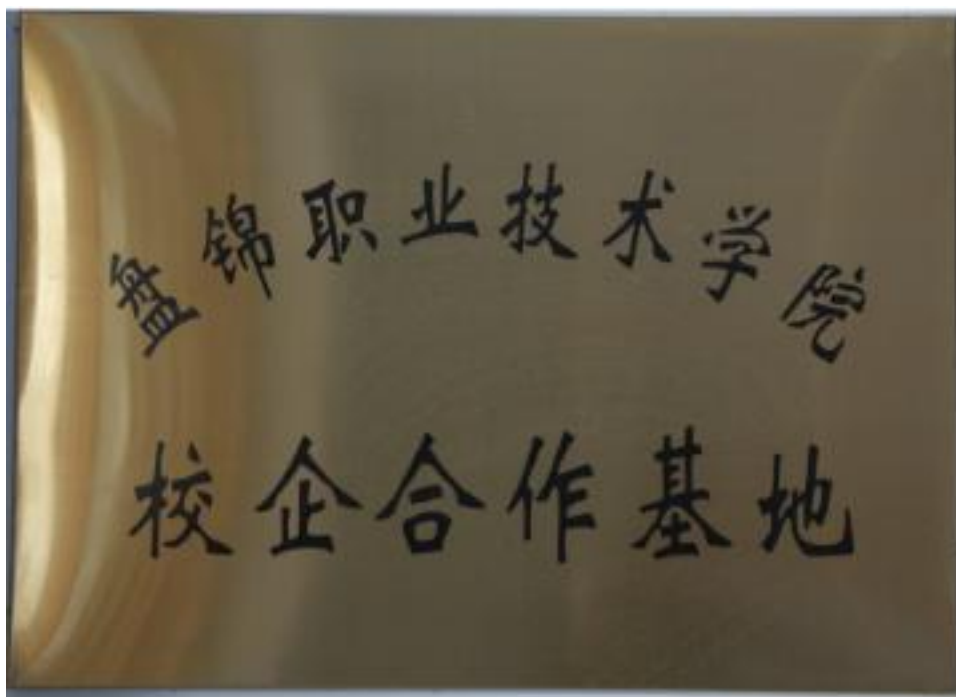 盘锦职业技术学院
校企合作基地